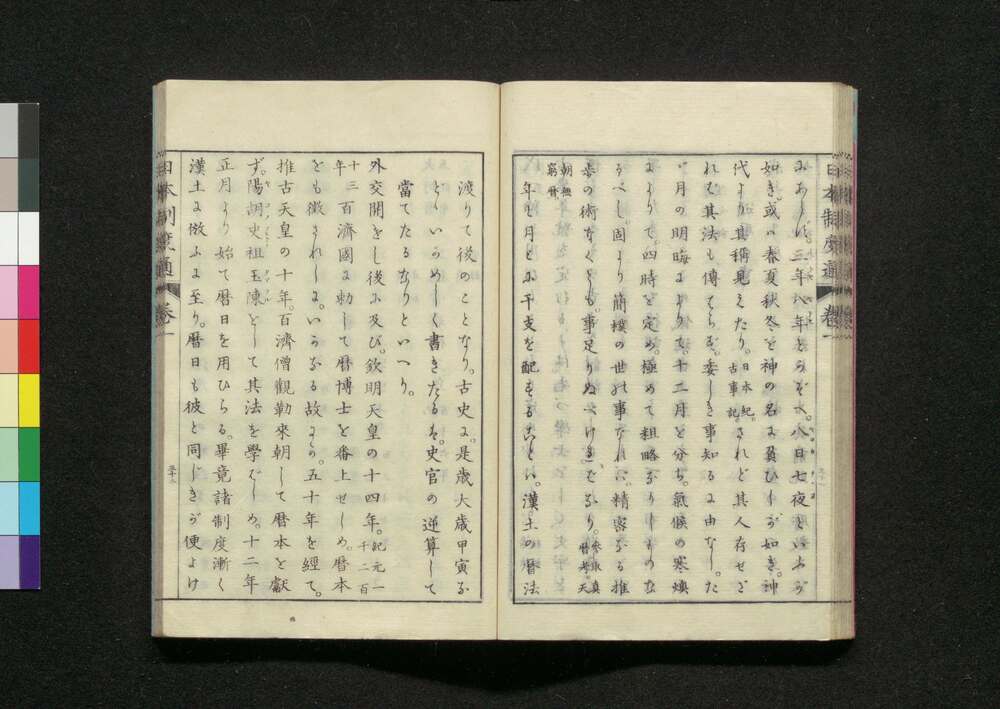 三年八年と
八日七夜といふが
如き。或ハ春夏秋冬を神の名に負ひしが如き。神
代より其稱見えたり。日本紀。古事記。されど其人存せざ
れば其法も傳はらず。委しき事知るに由なし。た
ゞ月の明晦によりて。十二月を分ち。氣候の寒燠
によりて。四時を定め。極めて粗略なりしものな
るべし。固より簡樸の世の事なれば。精密なる推
歩の術なくとも。事足りぬべければなり。參取眞暦考。天
朝無窮暦
年と月とに干支を配することは。漢土の暦法
日本制度通 卷一
渡りて後のことなり。古史に。是歳大歳甲寅な
どゝいかめしく書きたるは。史官の逆算して
當てたるなりといへり。
外交開きし後に及び。欽明天皇の十四年。紀元一千二百
十三年百濟國に勅して暦博士を番上せしめ。暦本
をも徴されしに。いかなる故にか。五十年を經て。
推古天皇の十年。百濟僧觀勒來朝して暦本を獻
ず。陽胡史祖玉陳をして其法を學ばしめ。十二年
正月より始て暦日を用ひらる。畢竟諸制度漸く
漢土に倣ふに至り。暦日も彼と同じきが便よけ
日本制度通 卷一